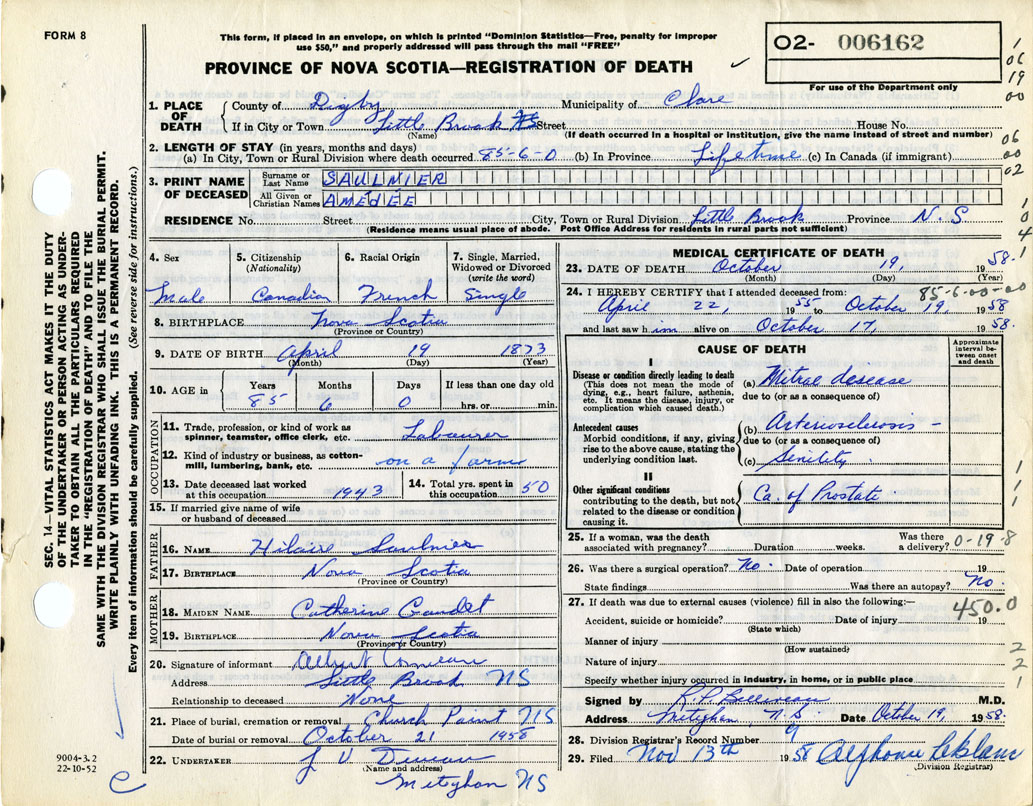 FORM 8
This form, if placed in an envelope, on which is printed "Dominion Statistics—Free, penalty for improper
use $50," and properly addressed will pass through the mail "FREE"
PROVINCE OF NOVA SCOTIA—REGISTRATION OF DEATH
02- 006162
For use of the Department only
1 06 19 00
06 00 02
1 0 4 1
SEC. 14—VITAL STATISTICS ACT MAKES IT THE DUTY
OF THE UNDERTAKER OR PERSON ACTING AS UNDER-
TAKER TO OBTAIN ALL THE PARTICULARS REQUIRED
IN THE "REGISTRATION OF DEATH" AND TO FILE THE
SAME WITH THE DIVISION REGISTRAR WHO SHALL ISSUE THE BURIAL PERMIT.
WRITE PLAINLY WITH UNFADING INK. THIS IS A PERMANENT RECORD.
Every item of information should be carefully supplied. (See reverse side for instructions.)
1. PLACE OF DEATH County of Digby Municipality of Clare
If in City or Town Little Brook NS Street House No.
(Name) (If death occurred in a hospital or institution, give the name instead of street and number)
2. LENGTH OF STAY (in years, months and days)
(a) In City, Town or Rural Division where death occurred 85-6-0 (b) In Province Lifetime (c) In Canada (if immigrant)
3. PRINT NAME OF DECEASED Surname or Last Name SAULNIER
All Given or Christian Names AMÉDÉE
RESIDENCE No. Street City, Town or Rural Division Little Brook Province N.S.
(Residence means usual place of abode. Post Office Address for residents in rural parts not sufficient)
4. Sex 5. Citizenship (Nationality) 6. Racial Origin 7. Single, Married, Widowed or Divorced (write the word)
Male Canadian French Single
8. BIRTHPLACE Nova Scotia
(Province or Country)
9. DATE OF BIRTH April 19 1873
(Month) (Day) (Year)
10. AGE in Years Months Days If less than one day old
85 6 0 hrs. or min.
OCCUPATION
11. Trade, profession, or kind of work as
spinner, teamster, office clerk, etc. Labourer
12. Kind of industry or business, as cotton-
mill, lumbering, bank, etc. on a farm
13. Date deceased last worked at this occupation 1943 14. Total yrs. spent in this occupation 50
15. If married give name of wife
or husband of deceased
FATHER
16. NAME Hilaire Saulnier
17. BIRTHPLACE Nova Scotia
(Province or Country)
MOTHER
18. MAIDEN NAME Catherine Gaudet
19. BIRTHPLACE Nova Scotia
(Province or Country)
20. Signature of informant Albert Comeau
Address Little Brook NS
Relationship to deceased None
21. Place of burial, cremation or removal Church Point NS
Date of burial or removal October 21 1958
22. UNDERTAKER
(Name and address)
Meteghan NS
9004-3.2
22-10-52
MEDICAL CERTIFICATE OF DEATH
23. DATE OF DEATH October 19, 1958.
(Month) (Day) (Year)
85-6-00-00
24. I HEREBY CERTIFY that I attended deceased from:
April 22, 1955 to October 19, 1958
and last saw him alive on October 17, 1958.
CAUSE OF DEATH
Approximate interval be-tween onset and death
I
Disease or condition directly leading to death
(This does not mean the mode of
dying, e.g., heart failure, asthenia,
etc. It means the disease, injury, or
complication which caused death.)
(a) Mitral desease
due to (or as a consequence of)
Antecedent causes
Morbid conditions, if any, giving
rise to the above cause, stating the
underlying condition last.
(b) Arteriosclerosis -
due to (or as a consequence of)
(c) Senility.
II
Other significant conditions
contributing to the death, but not
related to the disease or condition
causing it.
Ca. of Prostate.
1 1 1
25. If a woman, was the death
associated with pregnancy? Duration weeks. Was there a delivery?
0-19-8
26. Was there a surgical operation? No. Date of operation 19
State findings Was there an autopsy? No.
27. If death was due to external causes (violence) fill in also the following:— 450.0
Accident, suicide or homicide? Date of injury 19
(State which)
Manner of injury
(How sustained)
Nature of injury
2 2 1
Specify whether injury occurred in industry, in home, or in public place
Signed by R.P. Belliveau M.D.
Address Meteghan, N.S. Date October 19, 1958.
28. Division Registrar's Record Number 9
29. Filed Nov 13th 1958 Alphonse Leblanc
(Division Registrar)